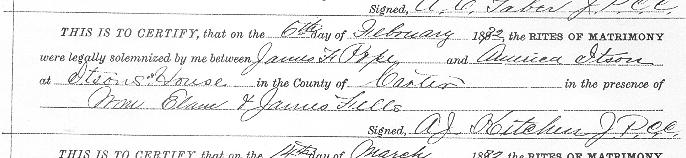 Signed, A. C. Faber J.P.C.C.
THIS IS TO CERTIFY, that on the 6th day of February 1882, the RITES OF MATRIMONY
were legally solemnized by me between James H Pope and America Itson
at Itsons House in the County of Carter in the presence of
Wm Elam & James Fells
Signed, A J Kitchen J.P.C.C.
THIS IS TO CERTIFY that on the 14th day of March 1882 the RITES OF MATRIMONY